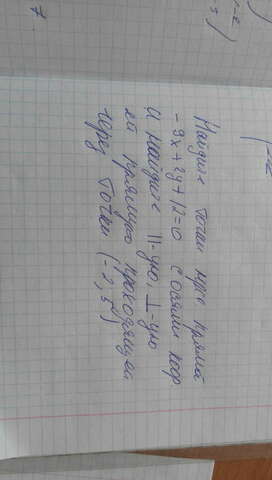 Найдите точки пере прямой
-9x+2y+12=0 с осями коор.
и найдите ||-ую, ⊥-ую
ей прямую проходящей
через точки (-2,5)
7